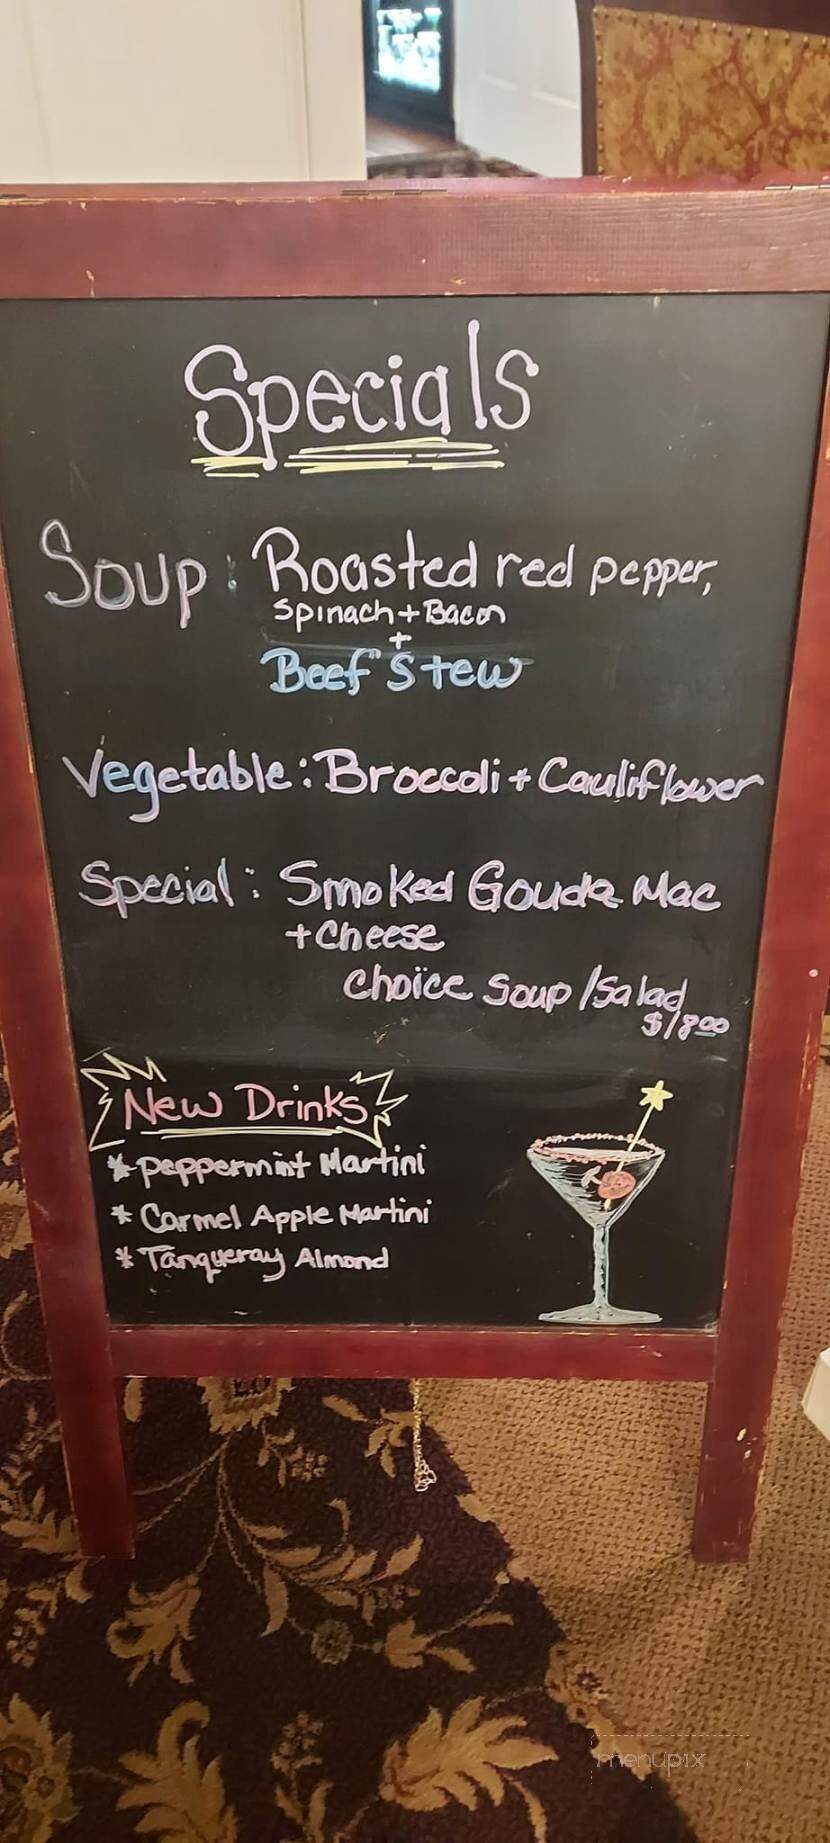 Specials
Soup: Roasted red pepper,
Spinach + Bacon
+
Beef Stew
Vegetable: Broccoli + Cauliflower
Special: Smoked Gouda Mac
+ Cheese
Choice Soup / Salad
$18.00
New Drinks
* Peppermint Martini
* Carmel Apple Martini
* Tanqueray Almond
menupix